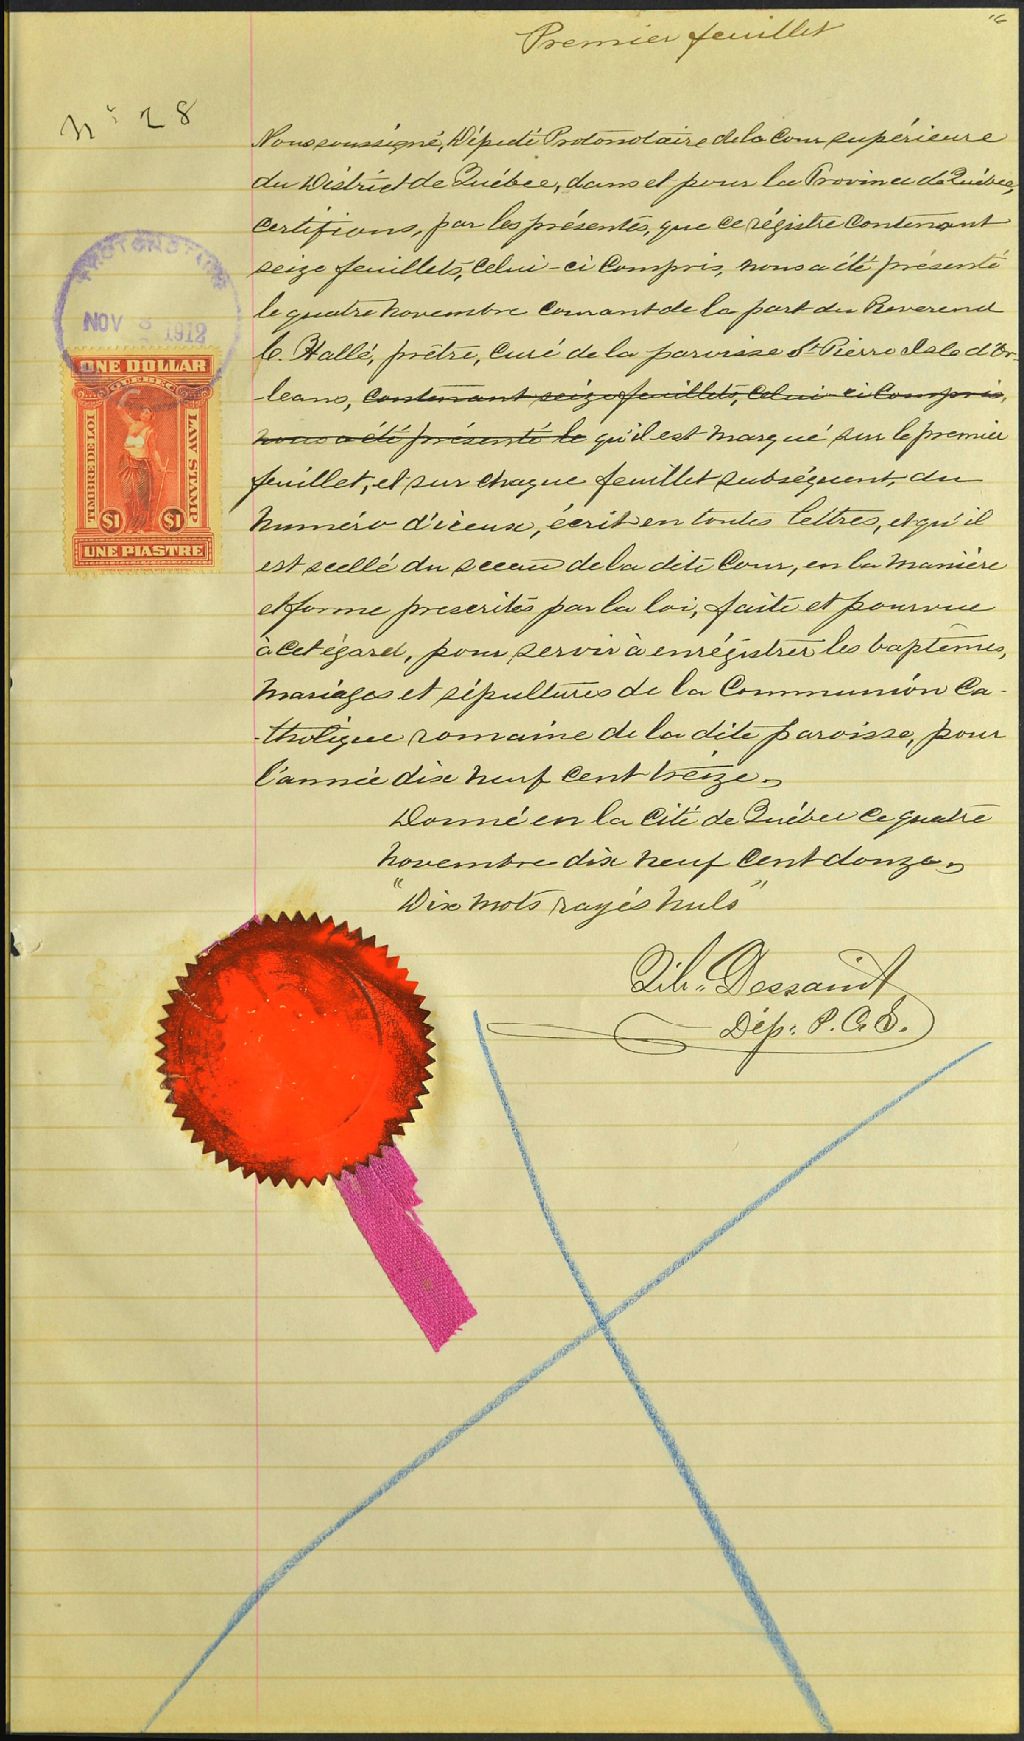 Premier feuillet
16
No 28
Nous soussigné, Député Protonotaire de la Cour supérieure
du District de Québec, dans et pour la Province de Québec,
certifions, par les présentes, que ce régistre contenant
seize feuillets, celui-ci compris, nous a été présenté
le quatre novembre courant de la part du Reverend
C. Hallé, prêtre, curé de la paroisse St Pierre Isle d'Or-
-leans, contenant seize feuillets, celui-ci compris,
nous a été présenté le qu'il est marqué sur le premier
feuillet, et sur chaque feuillet subséquent, du
numéro d'iceux, écrit en toutes lettres, et qu'il
est scellé du sceau de la dite Cour, en la manière
et forme prescrites par la loi, faite et pourvue
à cet égard, pour servir à enrégistrer les baptêmes,
mariages et sépultures de la Communion Ca-
-tholique romaine de la dite paroisse, pour
l'année dix neuf cent treize.
Donné en la cité de Québec ce quatre
novembre dix neuf cent douze.
"Dix mots rayés nuls"
Dép: P.C.S.
PROTONOTAIRE
NOV 1912
ONE DOLLAR
QUEBEC
TIMBRE DE LOI
LAW STAMP
$1 $1
UNE PIASTRE